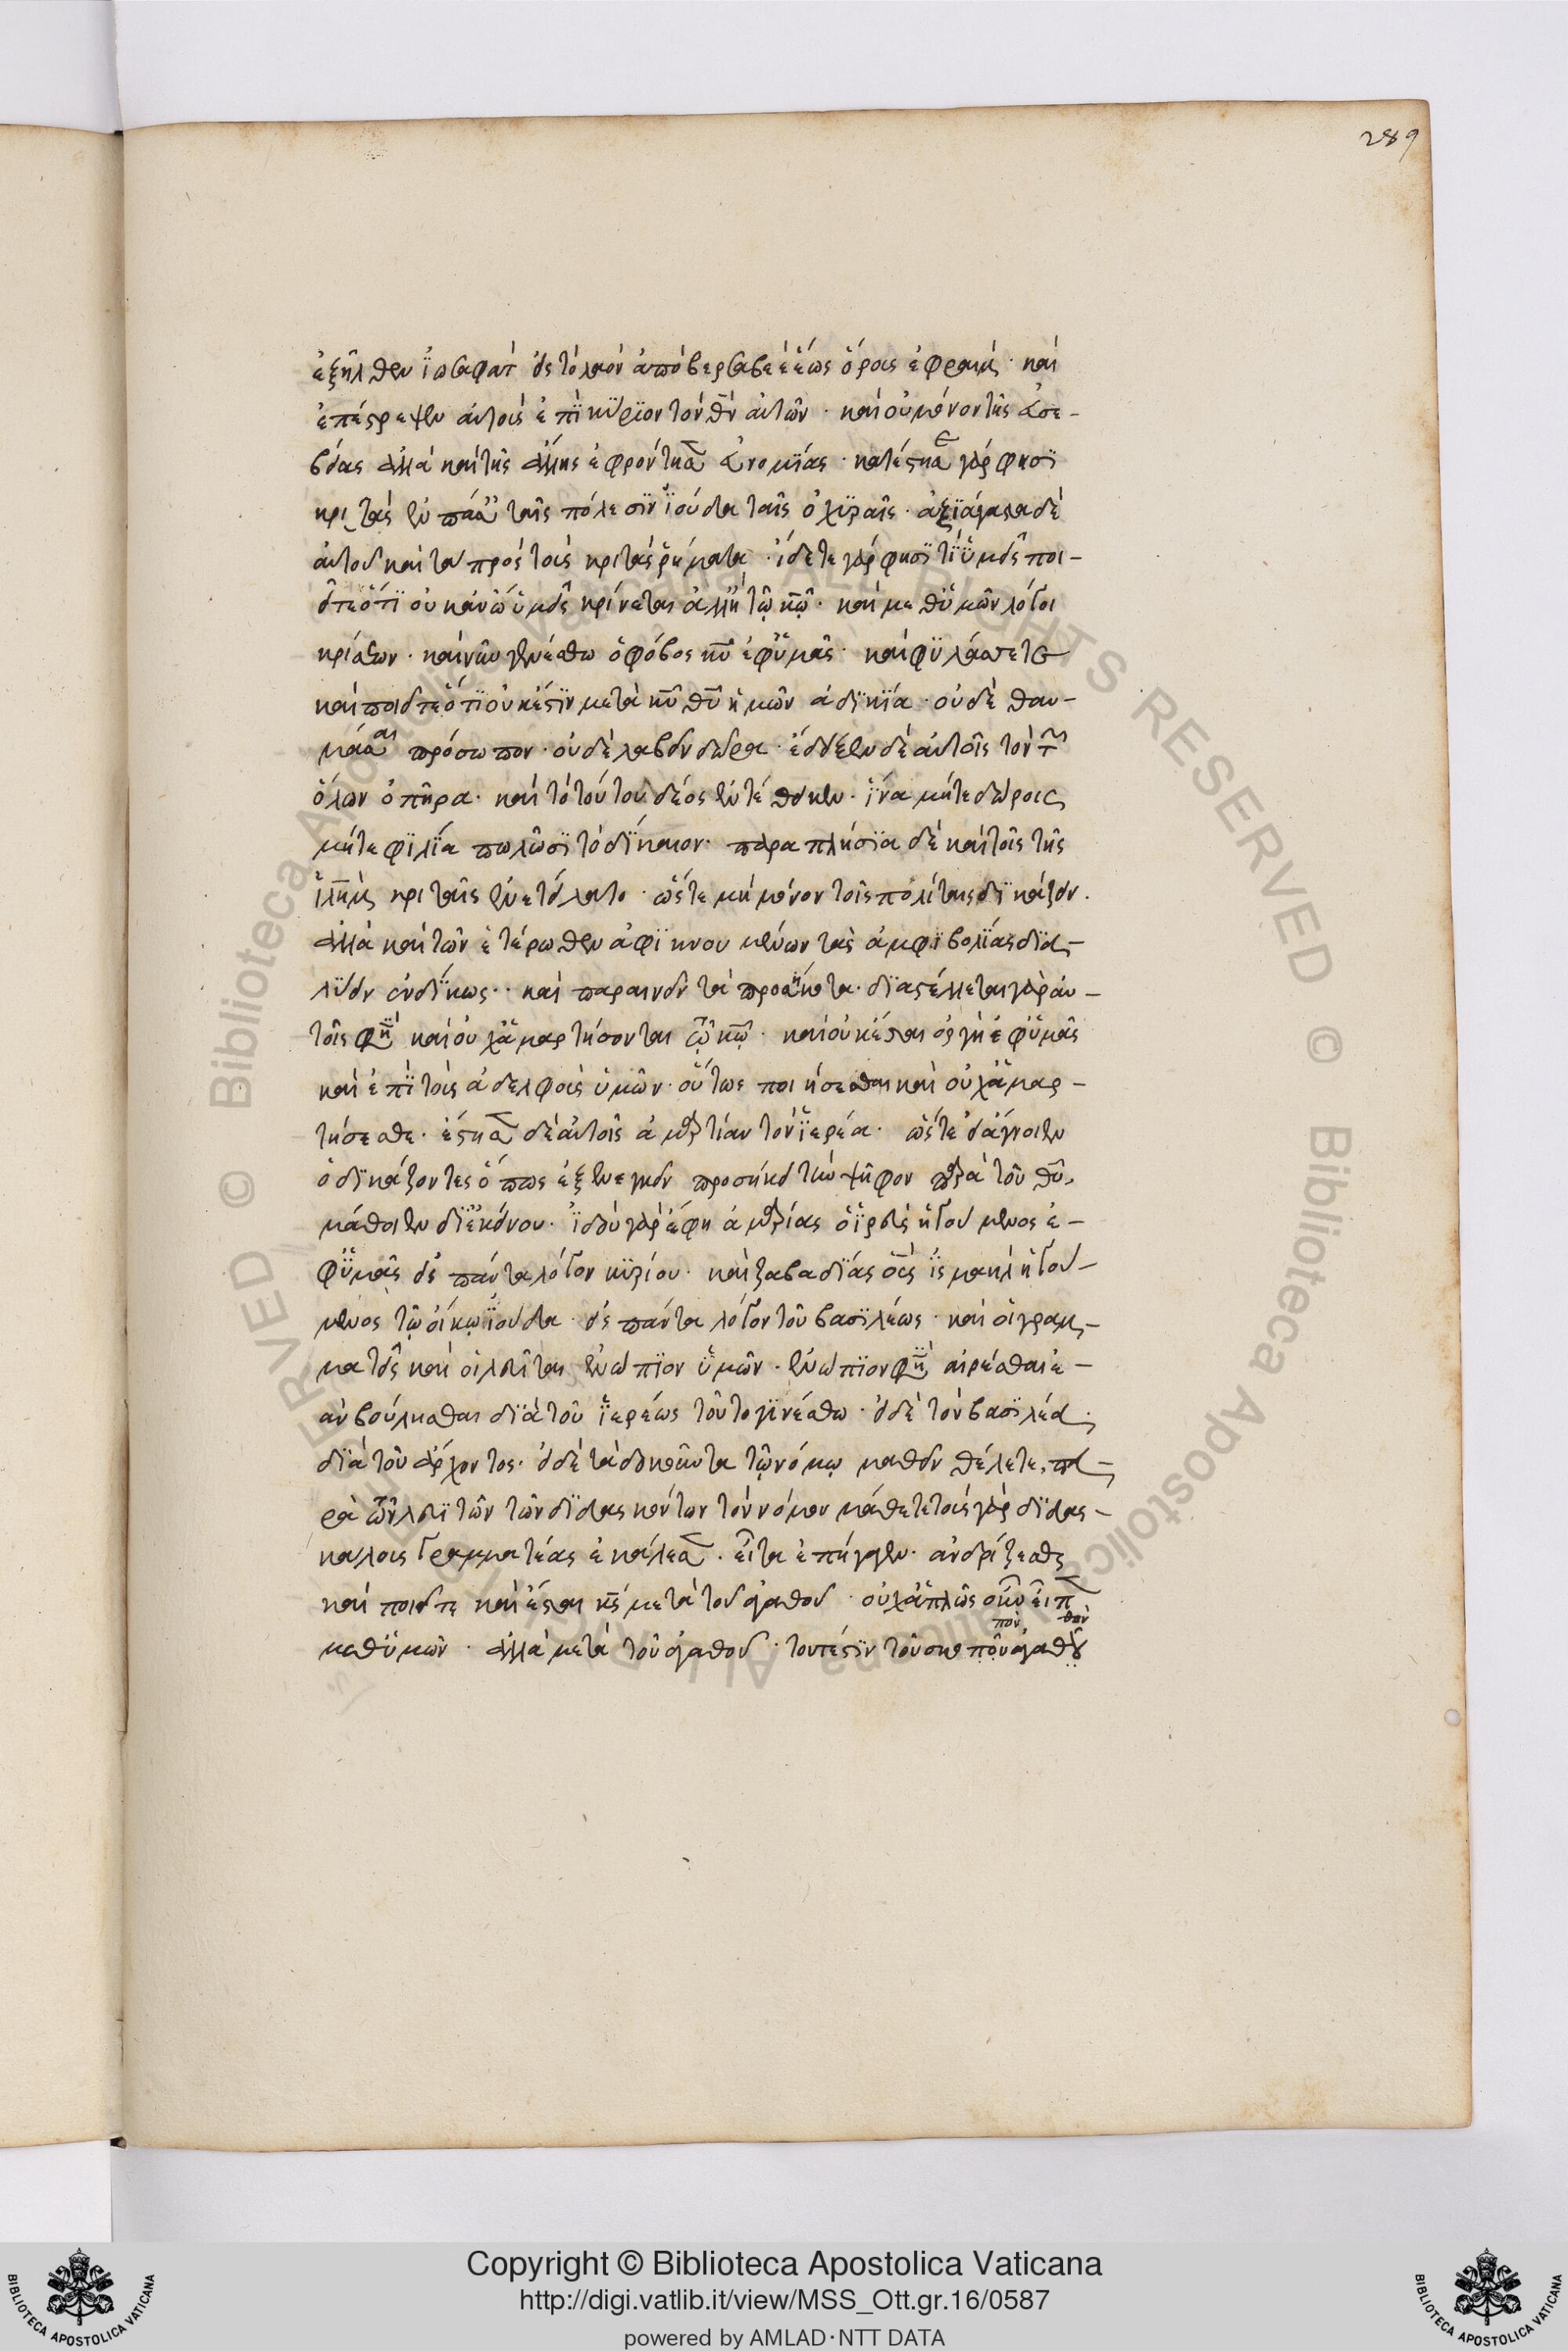 289
ἐξῆλθεν ἰωσαφὰτ εἰς τὸ λαὸν ἀπὸ βερσαβεὲ ἕως ὄρους ἐφραὶμ· καὶ
ἐπέστρεψεν αὐτοὺς ἐπὶ κύριον τὸν θν αὐτῶν · καὶ οὐ μόνον τῆς ἀσε-
βείας ἀλλὰ καὶ τῆς ἄλλης ἐφρόντισεν ἀνομίας · κατέστησε γάρ φησι
κριτὰς ἐν πάσαις ταῖς πόλεσιν ἰούδα ταῖς ὀχυραῖς · ἀξιάγαστα δὲ
αὐτοῦ καὶ τὰ πρὸς τοὺς κριτὰς ῥήματα · ἴδετε γάρ φησι τί ὑμεῖς ποι-
εῖτε ὅτι οὐκ ἀνω ὑμεῖς κρίνετε ἀλλ' ἢ τῷ κῷ · καὶ μεθ' ὑμῶν λόγοι
κρίσεων · καὶ νῦν γενέσθω ὁ φόβος κυ ἐφ' ὑμᾶς · καὶ φυλάσσετε
καὶ ποιεῖτε ὅτι οὐκ ἔστιν μετὰ κυ θυ ἡμῶν ἀδικία · οὐδὲ θαυ-
μάσαι πρόσωπον · οὐδὲ λαβεῖν δῶρα · ἔδειξεν δὲ αὐτοῖς τὸν τῶν
ὅλων ὀπῆρα · καὶ τὸ τούτου δέος ἐντέθεικεν · ἵνα μήτε δώροις
μήτε φιλία πωλῶσι τὸ δίκαιον · παραπλήσια δὲ καὶ τοῖς τῆς
ἱλημ κριταῖς ἐνετείλατο · ὥστε μὴ μόνον τοῖς πολίταις δικάζειν ·
ἀλλὰ καὶ τῶν ἑτέρωθεν ἀφικνουμένων τὰς ἀμφιβολίας δια-
λύειν ἐνδίκως · καὶ παραινεῖν τὰ προσήκοντα · διαστέλλεται γὰρ αὐ-
τοῖς φη καὶ οὐχ ἁμαρτήσονται τῷ κῷ · καὶ οὐκ ἔσται ὀργὴ ἐφ' ὑμᾶς
καὶ ἐπὶ τοὺς ἀδελφοὺς ὑμῶν · οὕτως ποιήσεσθαι καὶ οὐχ ἁμαρ-
τήσεσθε · ἔστησεν δὲ αὐτοῖς ἀμαρτίαν τὸν ἱερέα · ὥστε εἰ ἀγνοιεν
ὁ δικάζοντες ὅπως ἐξενεγκεῖν προσήκει τὴν ψῆφον παρὰ τοῦ θυ
μάθοιεν δι' ἐκείνου · ἰδοὺ γὰρ ἔφη ἀμαρίας ὁ ἱερεὺς ἡγούμενος ἐ-
φ' ὑμᾶς εἰς πάντα λόγον κυρίου · καὶ ζαβαδίας ὁ υς ἰσμαὴλ ἡγού-
μενος τῷ οἴκῳ ἰούδα · εἰς πάντα λόγον τοῦ βασιλέως · καὶ οἱ γραμ-
ματεῖς καὶ οἱ λευῖται ἐνώπιον ὑμῶν · ἐνώπιον φη αἱρέσθαι ἐ-
ὰν βούλησθαι διὰ τοῦ ἱερέως τοῦτο γινέσθω · εἰ δὲ τὸν βασιλέα ·
διὰ τοῦ ἄρχοντος · εἰ δὲ τὰ δοκοῦντα τῷ νόμῳ μαθεῖν θέλετε, πα-
ρὰ τῶν λευιτῶν τῶν διδασκόντων τὸν νόμον μάθετε τοὺς γὰρ διδασ-
κάλους γραμματέας ἐκάλεσεν · εἶτα ἐπήγαγεν · ἀνδρίζεσθε
καὶ ποιεῖτε καὶ ἔσται κς μετὰ τοῦ ἀγαθοῦ · οὐχ ἁπλῶς οὖν εἶπεν
μεθ' ὑμῶν · ἀλλὰ μετὰ τοῦ ἀγαθοῦ · τουτέστιν τοῦ σκοποῦ ἀγαθοῦ